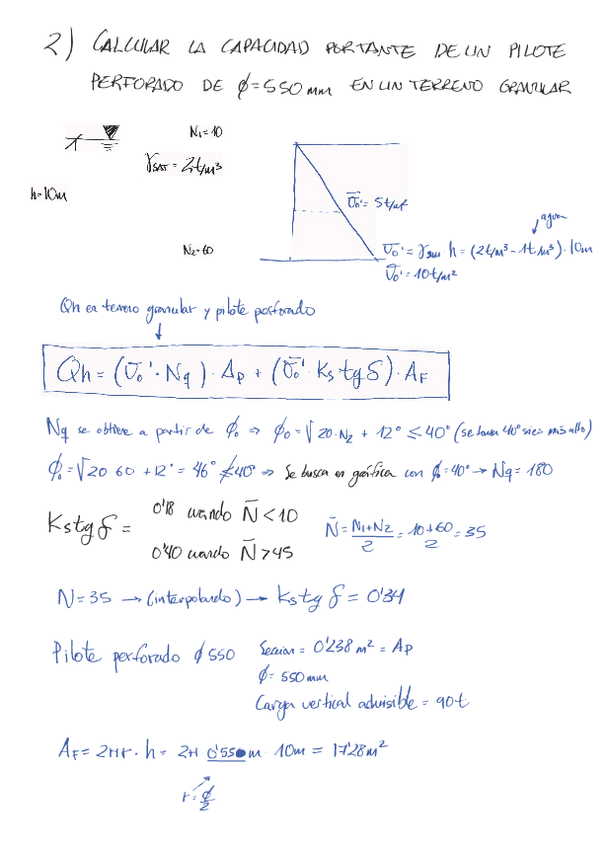 2) CALCULAR LA CAPACIDAD PORTANTE DE UN PILOTE
PERFORADO DE ϕ=550mm EN UN TERRENO GRANULAR
N₁=10
γSAT = 2t/m³
h=10m
σ̄₀' = 5t/m²
agua
N₂=60
σ̄₀' = γsum h = (2t/m³ - 1t/m³)·10m
σ̄₀' = 10t/m²
Qh en terreno granular y pilote perforado
Qh = (σ̄₀'·Nq)·Ap + (σ̄₀' Ks tg δ)·AF
Nq se obtiene a partir de ϕ₀ ⇒ ϕ₀ = √20·N₂ + 12° ≤ 40° (se toma 40° si es más alto)
ϕ₀ = √20·60 + 12° = 46° ≮ 40° ⇒ Se busca en gráfica con ϕ=40° → Nq = 180
Ks tg δ =
0'18 cuando N̄ < 10
0'40 cuando N̄ > 45
N̄ = N₁+N₂/2 = 10+60/2 = 35
N=35 → (interpolando) → Ks tg δ = 0'34
Pilote perforado ϕ 550
Sección = 0'238 m² = Ap
ϕ = 550 mm
Carga vertical admisible = 90t
AF = 2πr · h = 2π 0'550m · 10m = 17'28m²
r = ϕ/2